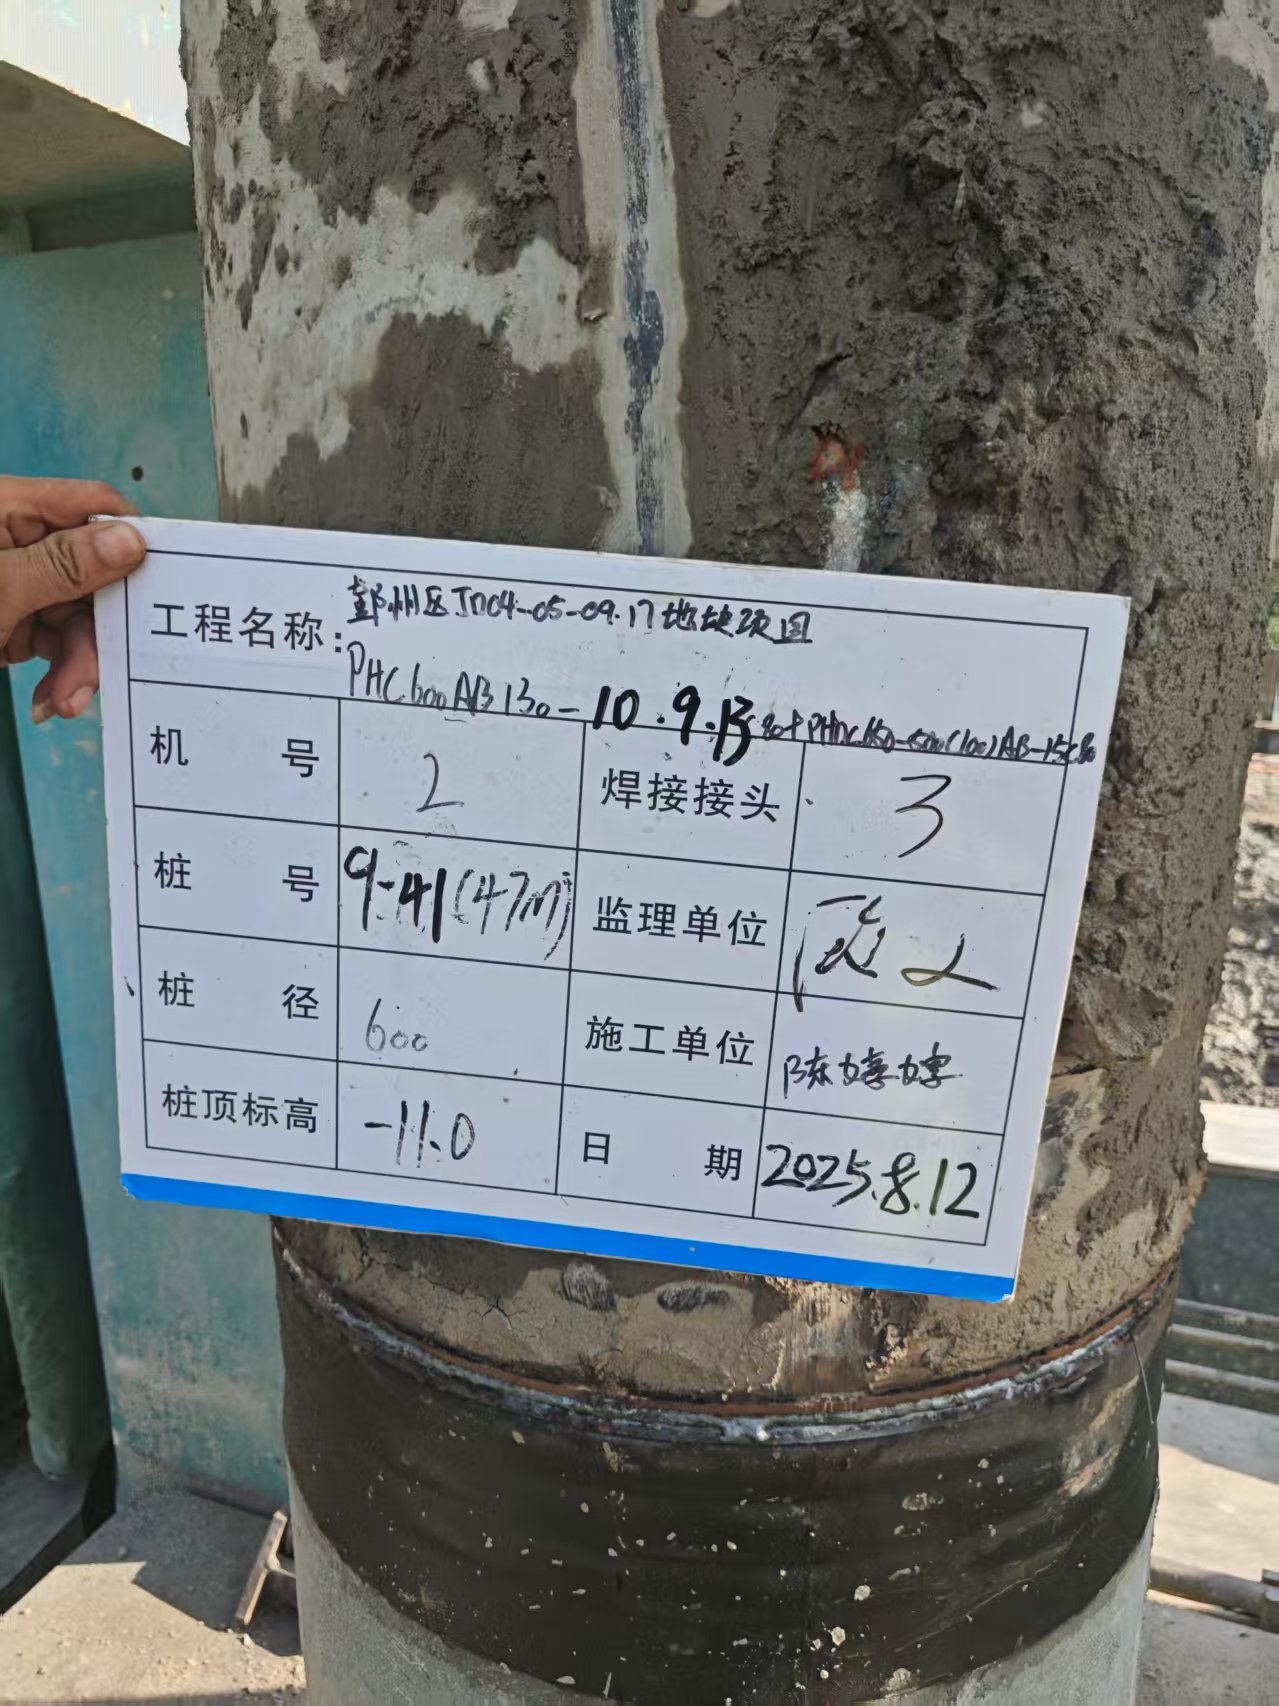 工程名称: 鄞州区JD04-05-09.17地块项目
PHC600AB130-10.9.13
机号 2 焊接接头 3
桩号 9-41(47m) 监理单位
桩径 600 施工单位
桩顶标高 -11.0 日期 2025.8.12